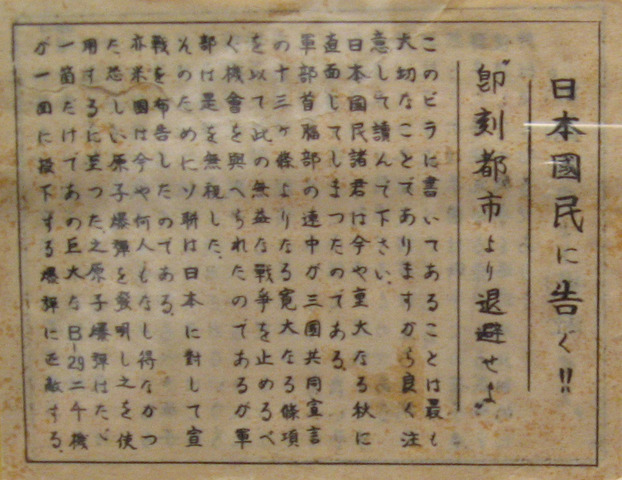 日本國民に告ぐ!!
"即刻都市より退避せよ"
このビラに書いてあることは最も
大切なことでありますから良く注
意して讀んで下さい。
日本國民諸君は今や重大なる秋に
直面してしまつたのである。
軍部首脳部の連中が三國共同宣言
の十三ヶ條よりなる寛大なる條項
を以て此の無益な戦争を止めるべ
く機會を與へられたのであるが軍
部は是を無視した。
そのためにソ聯は日本に対して宣
戦を布告したのである。
亦米國は今や何人もなし得なかつ
た恐しい原子爆弾を發明し之を使
用するに至つた。之原子爆弾はたゞ
一箇だけであの巨大なB-29二千機
が一回に投下する爆弾に匹敵する。